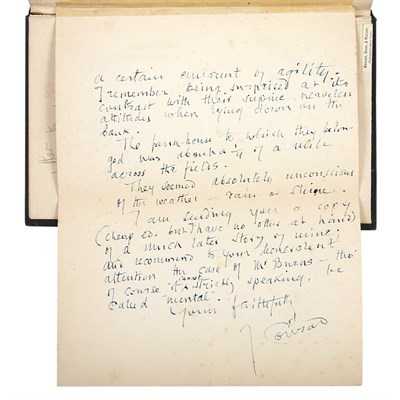 a certain amount of agility.
I remember being surprised at its
contrast with their supine, nerveless
attitudes when lying down on the
bank.
The farm-house to which they belon-
ged was about a ¼ of a mile
across the fields.
They seemed absolutely unconscious
of the weather – rain or shine.
I am sending you a copy
(cheap ed. but I have no other at hand)
of a much later story of mine,
and recommend to your benevolent
attention the case of Mr Burns – tho'
of course it can't strictly speaking, be
called "mental".
Yours faithfully
J. Conrad